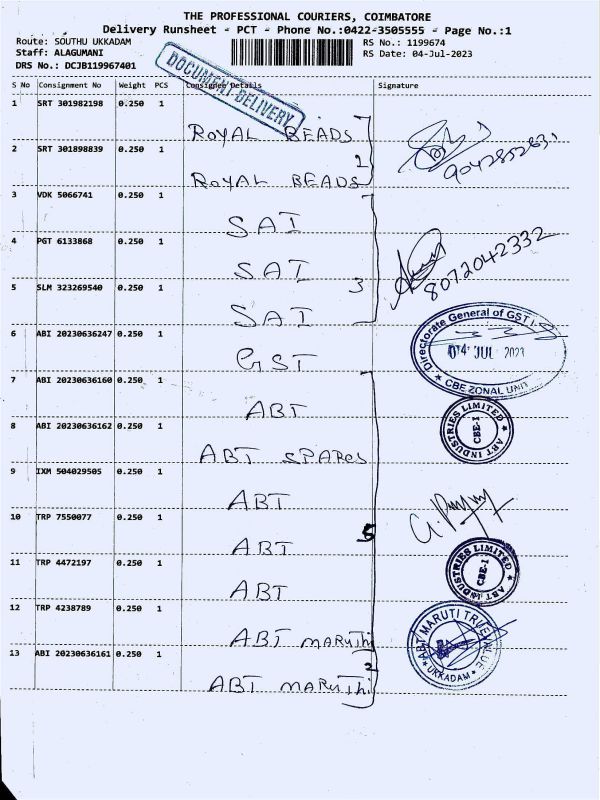 THE PROFESSIONAL COURIERS, COIMBATORE
Delivery Runsheet - PCT - Phone No.:0422-3505555 - Page No.:1
Route: SOUTHU UKKADAM
RS No.: 1199674
Staff: ALAGUMANI
RS Date: 04-Jul-2023
DRS No.: DCJB119967401
DOCUMENT DELIVERY
S No Consignment No Weight PCS Consignee Details Signature
1 SRT 301982198 0.250 1 ROYAL BEADS
2 SRT 301898839 0.250 1 ROYAL BEADS
3 VDK 5066741 0.250 1 SAI
4 PGT 6133868 0.250 1 SAI
8072042332
5 SLM 323269540 0.250 1 SAI
3
6 ABI 20230636247 0.250 1 GST
Directorate General of GST
04 JUL 2023
CBE ZONAL UNIT
7 ABI 20230636160 0.250 1 ABT
8 ABI 20230636162 0.250 1 ABT SPARES
ABT INDUSTRIES LIMITED
CBE-I
9 IXM 504029505 0.250 1 ABT
10 TRP 7550077 0.250 1 ABT
11 TRP 4472197 0.250 1 ABT
ABT INDUSTRIES LIMITED
CBE-I
12 TRP 4238789 0.250 1 ABT MARUThi
ABT MARUTI TRUE VALUE
UKKADAM
2
13 ABI 20230636161 0.250 1 ABT MARUThi